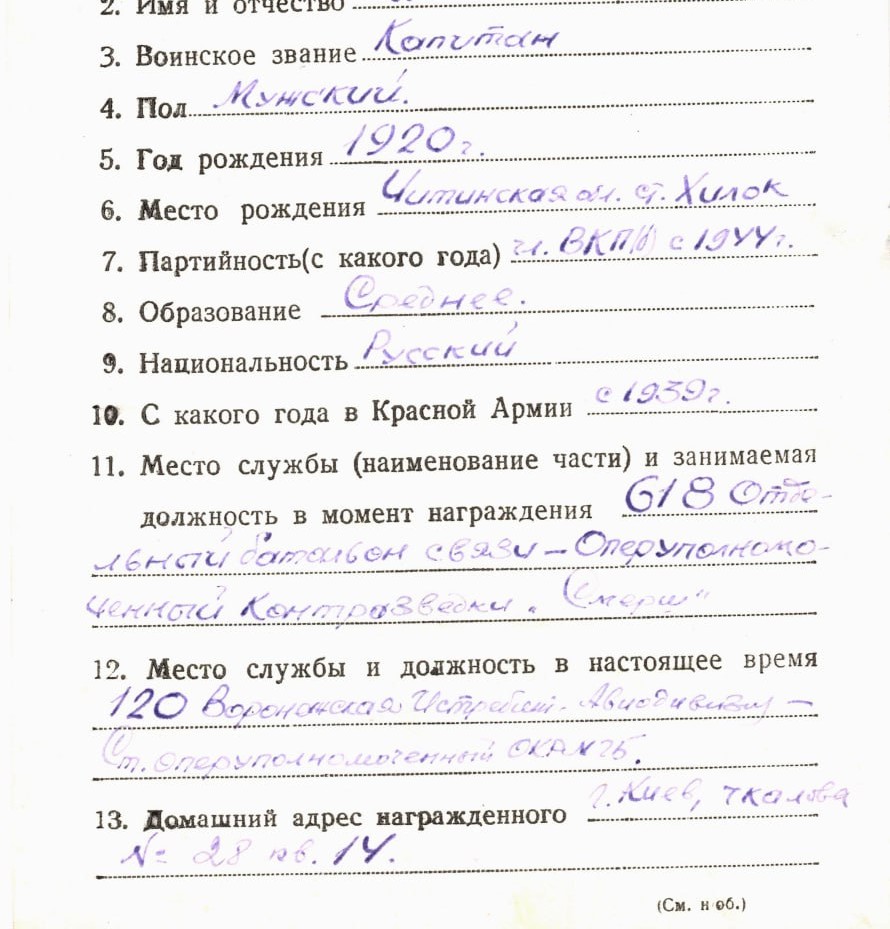 2. Имя и отчество
3. Воинское звание Капитан
4. Пол Мужский.
5. Год рождения 1920 г.
6. Место рождения Читинская обл. ст. Хилок
7. Партийность(с какого года) чл. ВКП(б) с 1944 г.
8. Образование Среднее.
9. Национальность Русский
10. С какого года в Красной Армии с 1939 г.
11. Место службы (наименование части) и занимаемая
должность в момент награждения 618 Отде-
льный батальон связи – Оперуполномо-
ченный Контрразведки „Смерш"
12. Место службы и должность в настоящее время
120 Истребит. Авиадивизия –
Ст. оперуполномоченный
13. Домашний адрес награжденного г. Киев, Чкалова
№ 28 кв. 14.
(См. н об.)